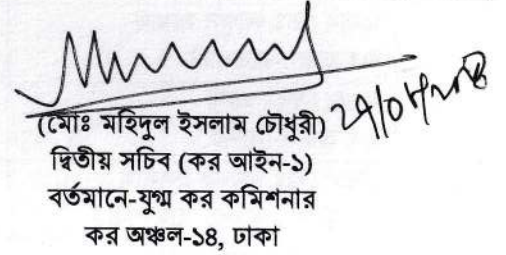 (মোঃ মহিদুল ইসলাম চৌধুরী)
দ্বিতীয় সচিব (কর আইন-১)
বর্তমানে-যুগ্ম কর কমিশনার
কর অঞ্চল-১৪, ঢাকা